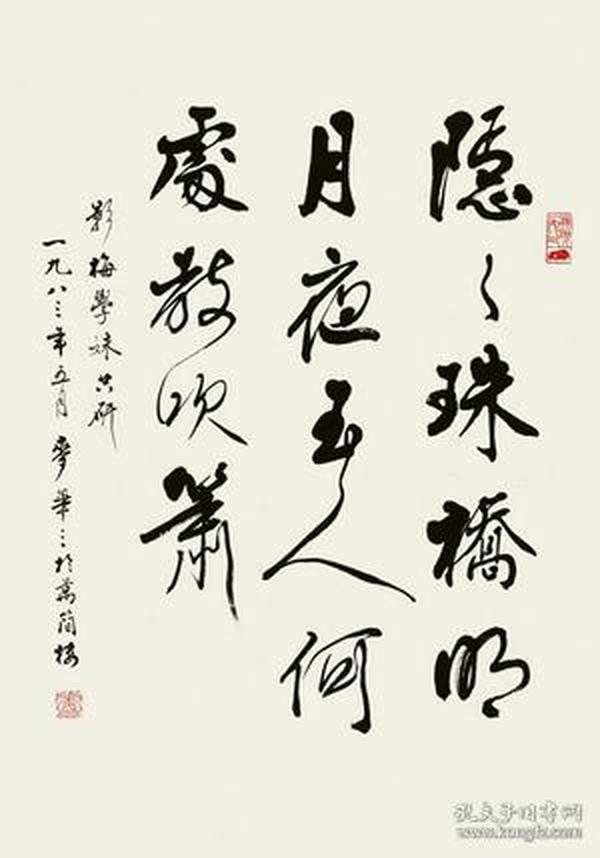 隱〻珠橋明
月夜玉人何
處教吹簫
影梅學妹共研
一九八三年五月 麥華三於萬簡樓
孔夫子旧书网
www.kongfz.com